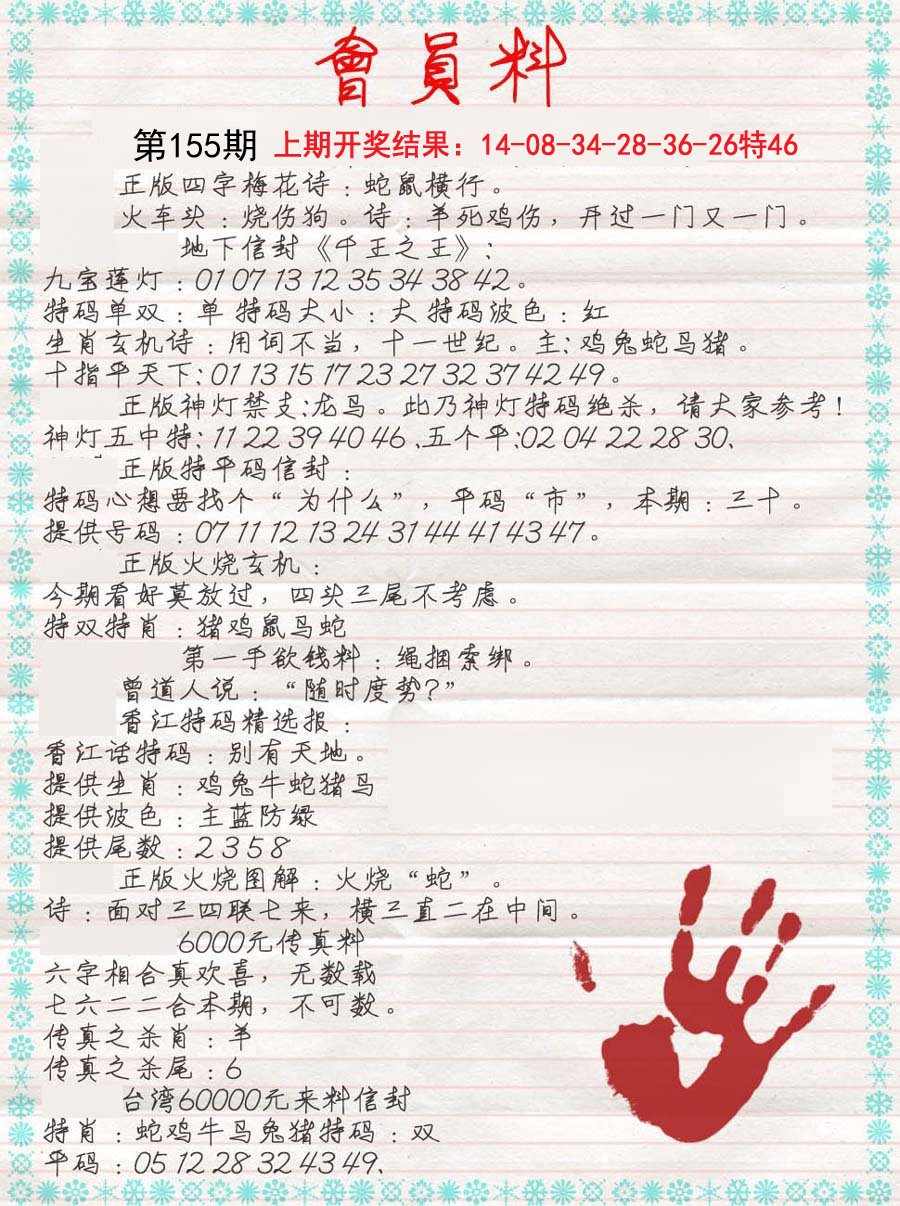 會員料
第155期 上期开奖结果：14-08-34-28-36-26特46
正版四字梅花诗：蛇鼠横行。
火车头：烧伤狗。诗：羊死鸡伤，开过一门又一门。
地下信封《千王之王》：
九宝莲灯：01 07 13 12 35 34 38 42。
特码单双：单 特码大小：大 特码波色：红
生肖玄机诗：用词不当，十一世纪。主：鸡兔蛇马猪。
十指平天下：01 13 15 17 23 27 32 37 42 49。
正版神灯禁支：龙马。此乃神灯特码绝杀，请大家参考！
神灯五中特：11 22 39 40 46、五个平：02 04 22 28 30、
正版特平码信封：
特码心想要找个“为什么”，平码“市”，本期：三十。
提供号码：07 11 12 13 24 31 44 41 43 47。
正版火烧玄机：
今期看好莫放过，四头三尾不考虑。
特双特肖：猪鸡鼠马蛇
第一手欲钱料：绳捆索绑。
曾道人说：“随时度势？”
香江特码精选报：
香江话特码：别有天地。
提供生肖：鸡兔牛蛇猪马
提供波色：主蓝防绿
提供尾数：2 3 5 8
正版火烧图解：火烧“蛇”。
诗：面对三四联七来，横三直二在中间。
6000元传真料
六字相合真欢喜，无数载
七六二二合本期，不可数。
传真之杀肖：羊
传真之杀尾：6
台湾60000元来料信封
特肖：蛇鸡牛马兔猪特码：双
平码：05 12 28 32 43 49、